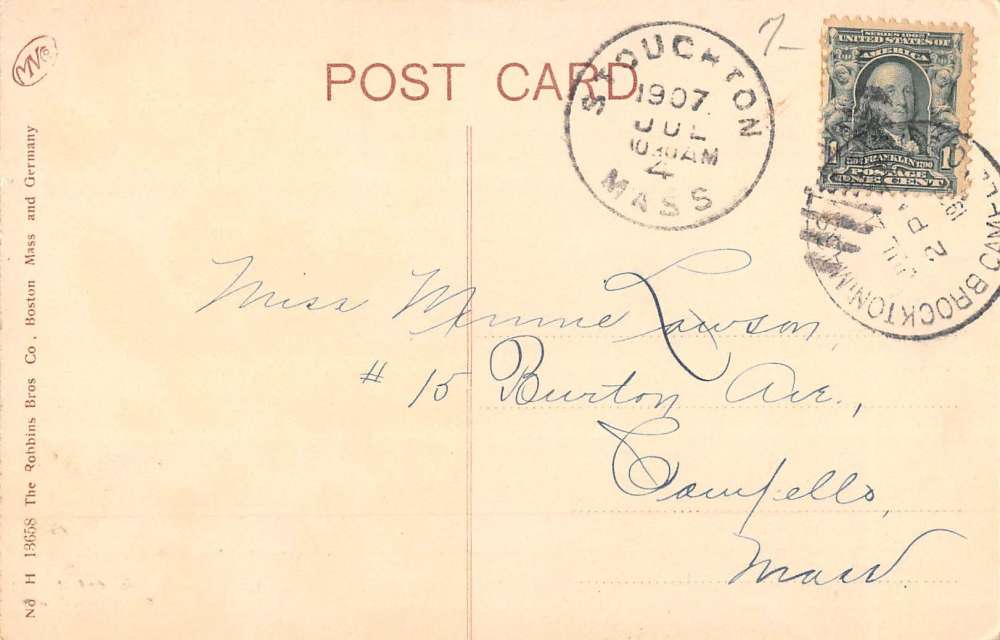 MV Co
POST CARD
7-
STOUGHTON
1907
JUL
10:30 AM
4
MASS
SERIES 1902
UNITED STATES OF
AMERICA
1 1
FRANKLIN
POSTAGE
ONE CENT
BROCKTON
JUL
2 P
Miss Minnie Lawson,
# 15 Burton Ave.,
Campello,
Mass
No H 13658 The Robbins Bros Co, Boston Mass and Germany